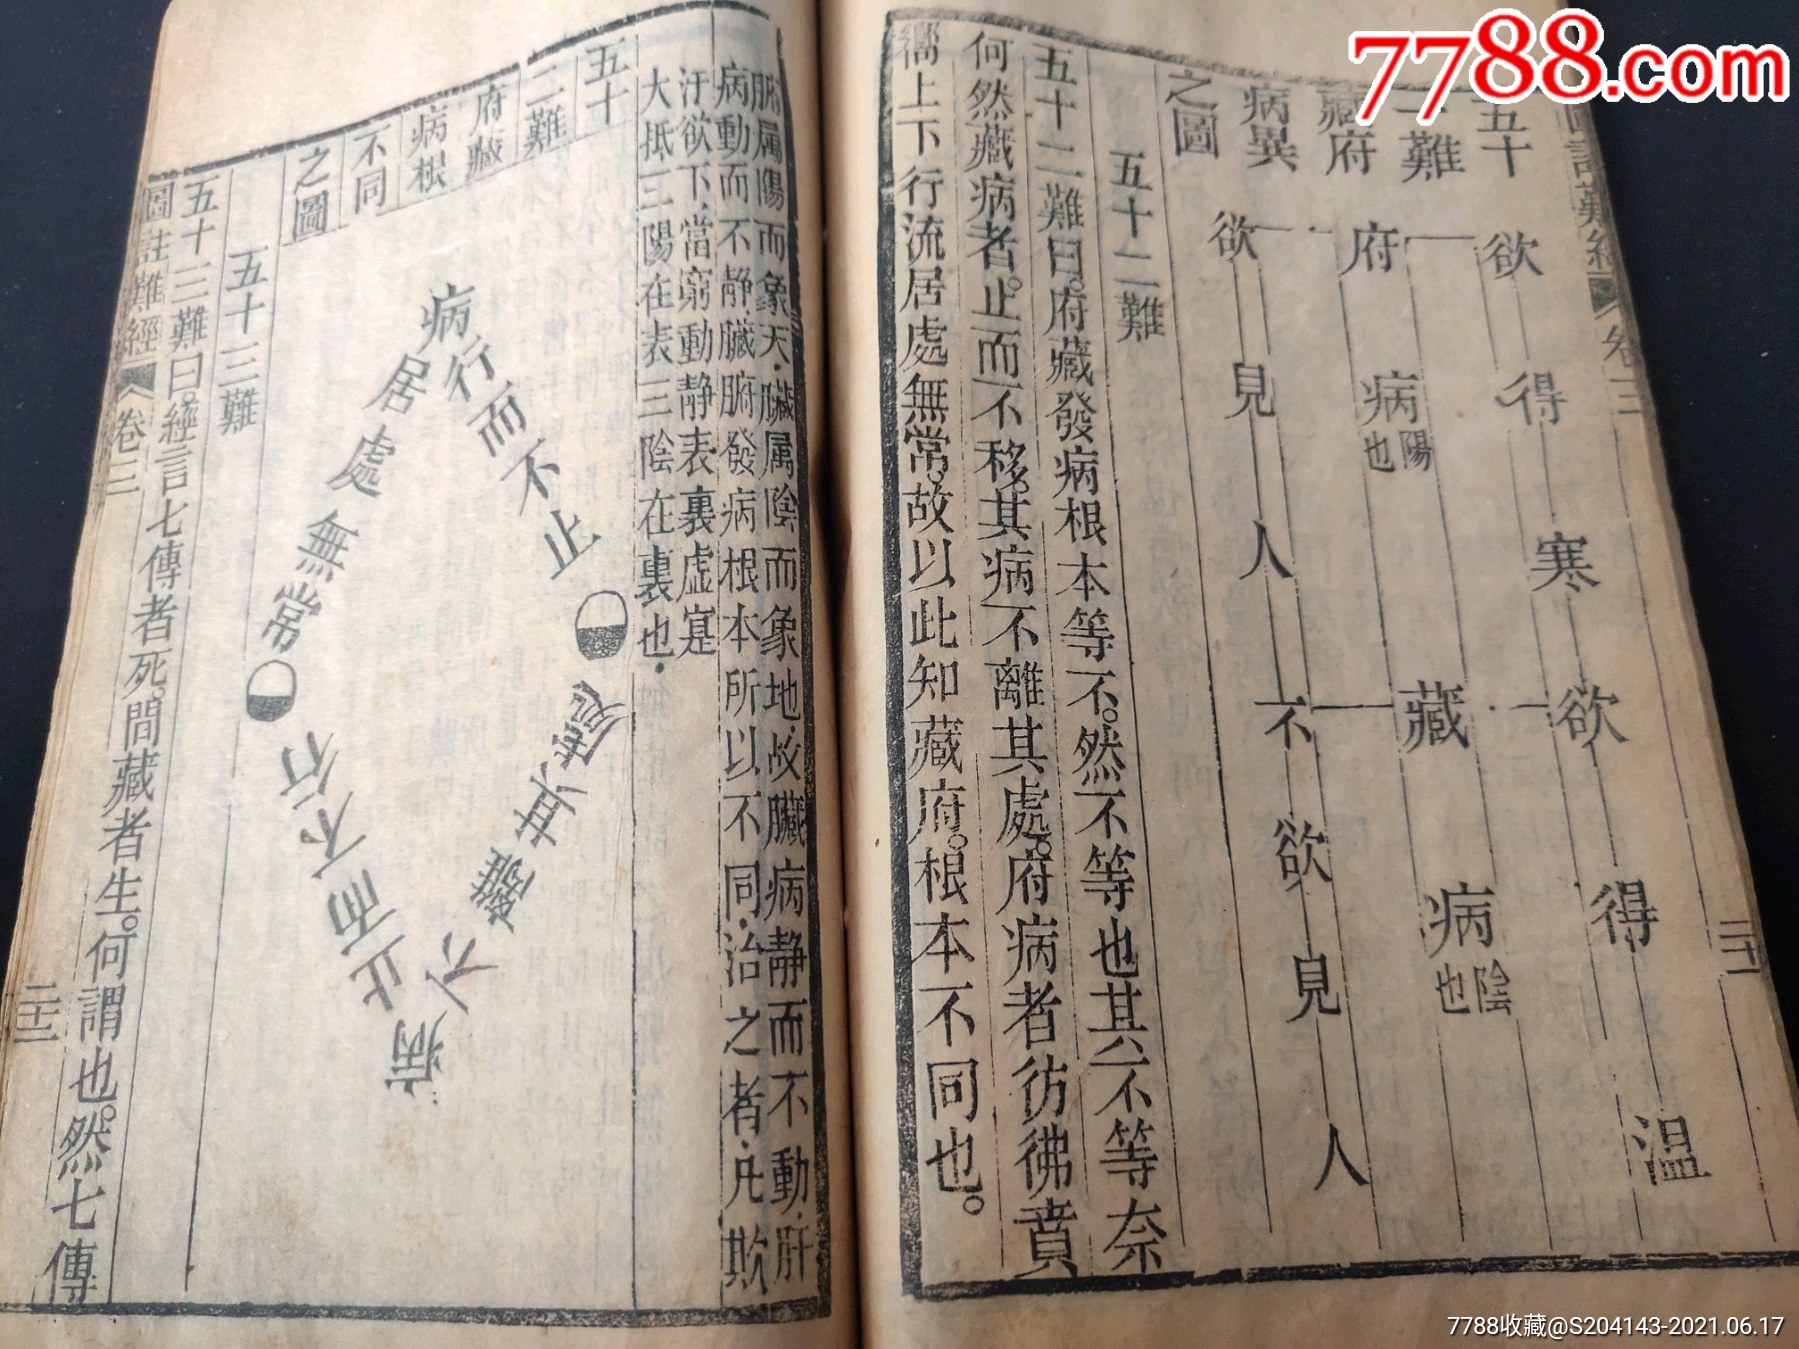 7788.com
圖註難經 卷三
二十一
五十
一難
藏府
病異
之圖
欲 得 寒 欲 得 溫
府 病 陽也 藏 病 陰也
欲 見 人 不 欲 見 人
五十二難
五十二難曰。府藏發病根本等不。然不等也其不等奈
何然藏病者。止而不移。其病不離其處。府病者彷彿賁
嚮上下行流居處無常。故以此知藏府。根本不同也。
腑属陽而象天.臟属陰而象地.故臟病静而不動.肝
病動而不静.臟腑發病根本所以不同.治之者.凡欺
汙欲下.當窮動静表裏虚寔
大抵三陽在表三陰在裏也.
五十
二難
府藏
病根
不同
之圖
病行而不止
居處無常
病不離其處
止而不行
五十三難
五十三難曰。經言七傳者死。間藏者生。何謂也。然七傳
圖註難經 卷三
二十二
7788收藏@S204143-2021.06.17